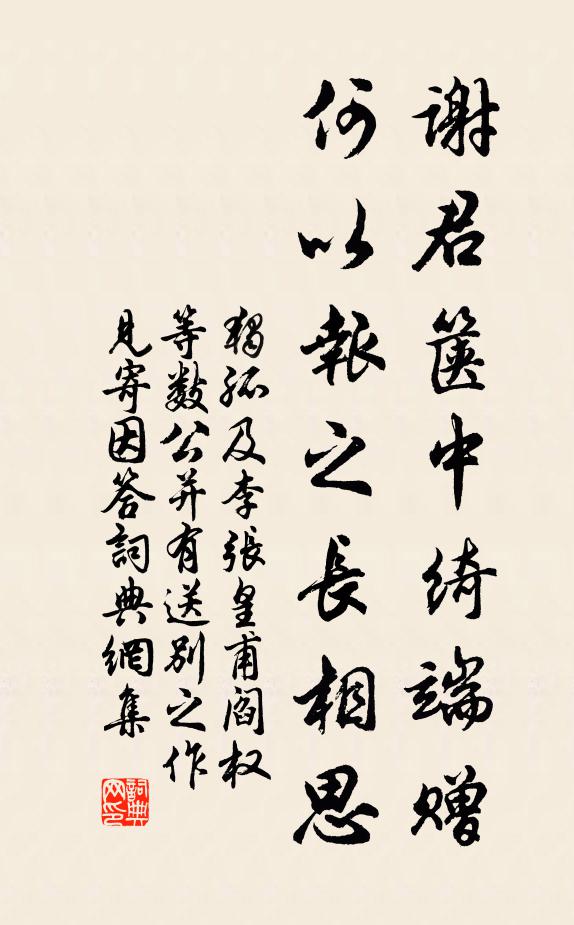 谢君箧中绮端赠
何以報之長相思
獨孤及李張皇甫阎权
等数公并有送别之作
見寄因答詞典網集
詞典
网印